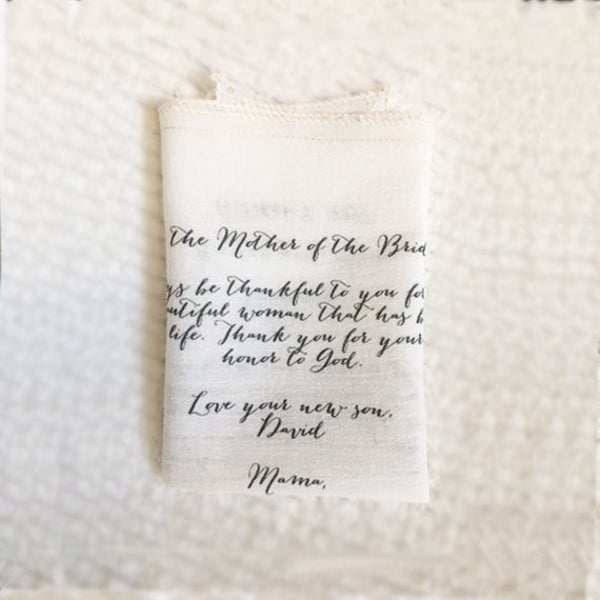 the Mother of the Brid
ys be thankful to you for
utiful woman that has b
life. Thank you for your
honor to God.
Love your new son,
David
Mama,